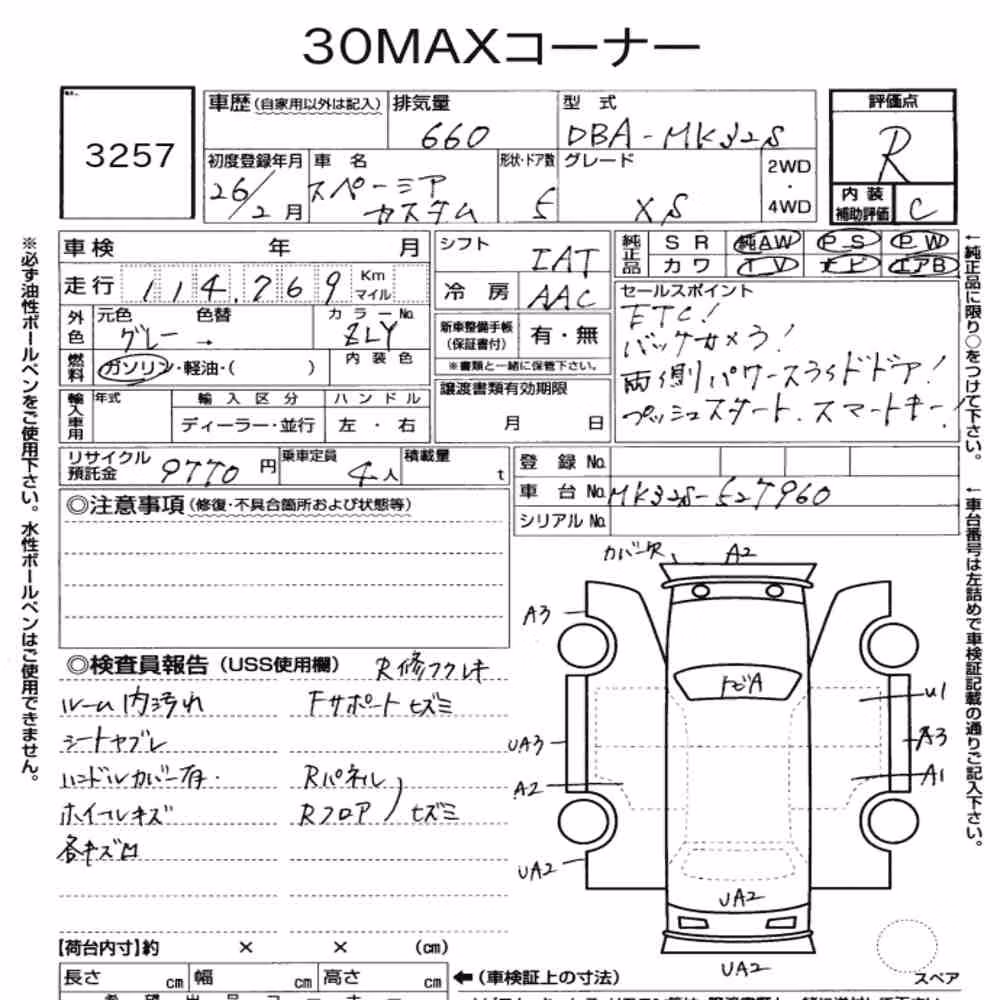 30MAXコーナー
3257
車歴 (自家用以外は記入) 排気量 型 式 評価点
660 DBA-MK32S R
初度登録年月 車 名 形状・ドア数 グレード 2WD・4WD 内装補助評価
26/2月 スペーシア カスタム 5 XS C
車検 年 月 シフト IAT 純正品 SR 純AW PS PW
カワ TV ナビ エアB
走行 114,769 Km マイル 冷房 AAC
セールスポイント
外色 元色 色替 カラーNo. 新車整備手帳 (保証書付) 有・無 ETC!
グレー → ZLY バックカメラ!
燃料 ガソリン・軽油・( ) 内装色 ※書類と一緒に保管下さい。 両側パワースライドドア!
輸入車用 年式 輸入区分 ハンドル 譲渡書類有効期限 プッシュスタート、スマートキー!
ディーラー・並行 左・右 月 日
リサイクル預託金 9770円 乗車定員 4人 積載量 t 登録No.
車台No. MK32S-527960
シリアルNo.
◎注意事項 (修復・不具合箇所および状態等)
カバー欠 A2
A3
◎検査員報告 (USS使用欄) R修フクレキ
トビA
ルーム内汚れ Fサポートヒズミ
U1
シートヤブレ
UA3 A3
ハンドルカバー有. Rパネル
A2 A1
ホイールキズ Rフロア ヒズミ
各キズ凹
UA2
UA2
【荷台内寸】約 × × (cm)
UA2
スペア
長さ cm 幅 cm 高さ cm ←(車検証上の寸法)
※必ず油性ボールペンをご使用下さい。水性ボールペンはご使用できません。
←純正品に限り○をつけて下さい。
←車台番号は左詰めで車検証記載の通りご記入下さい。